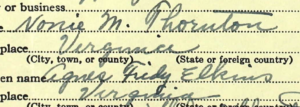 or business
Nonie M. Thornton
place Virginia
(City, town, or county) (State or foreign country)
en name Agnes Elkins
place Virginia
(City, town, or county)